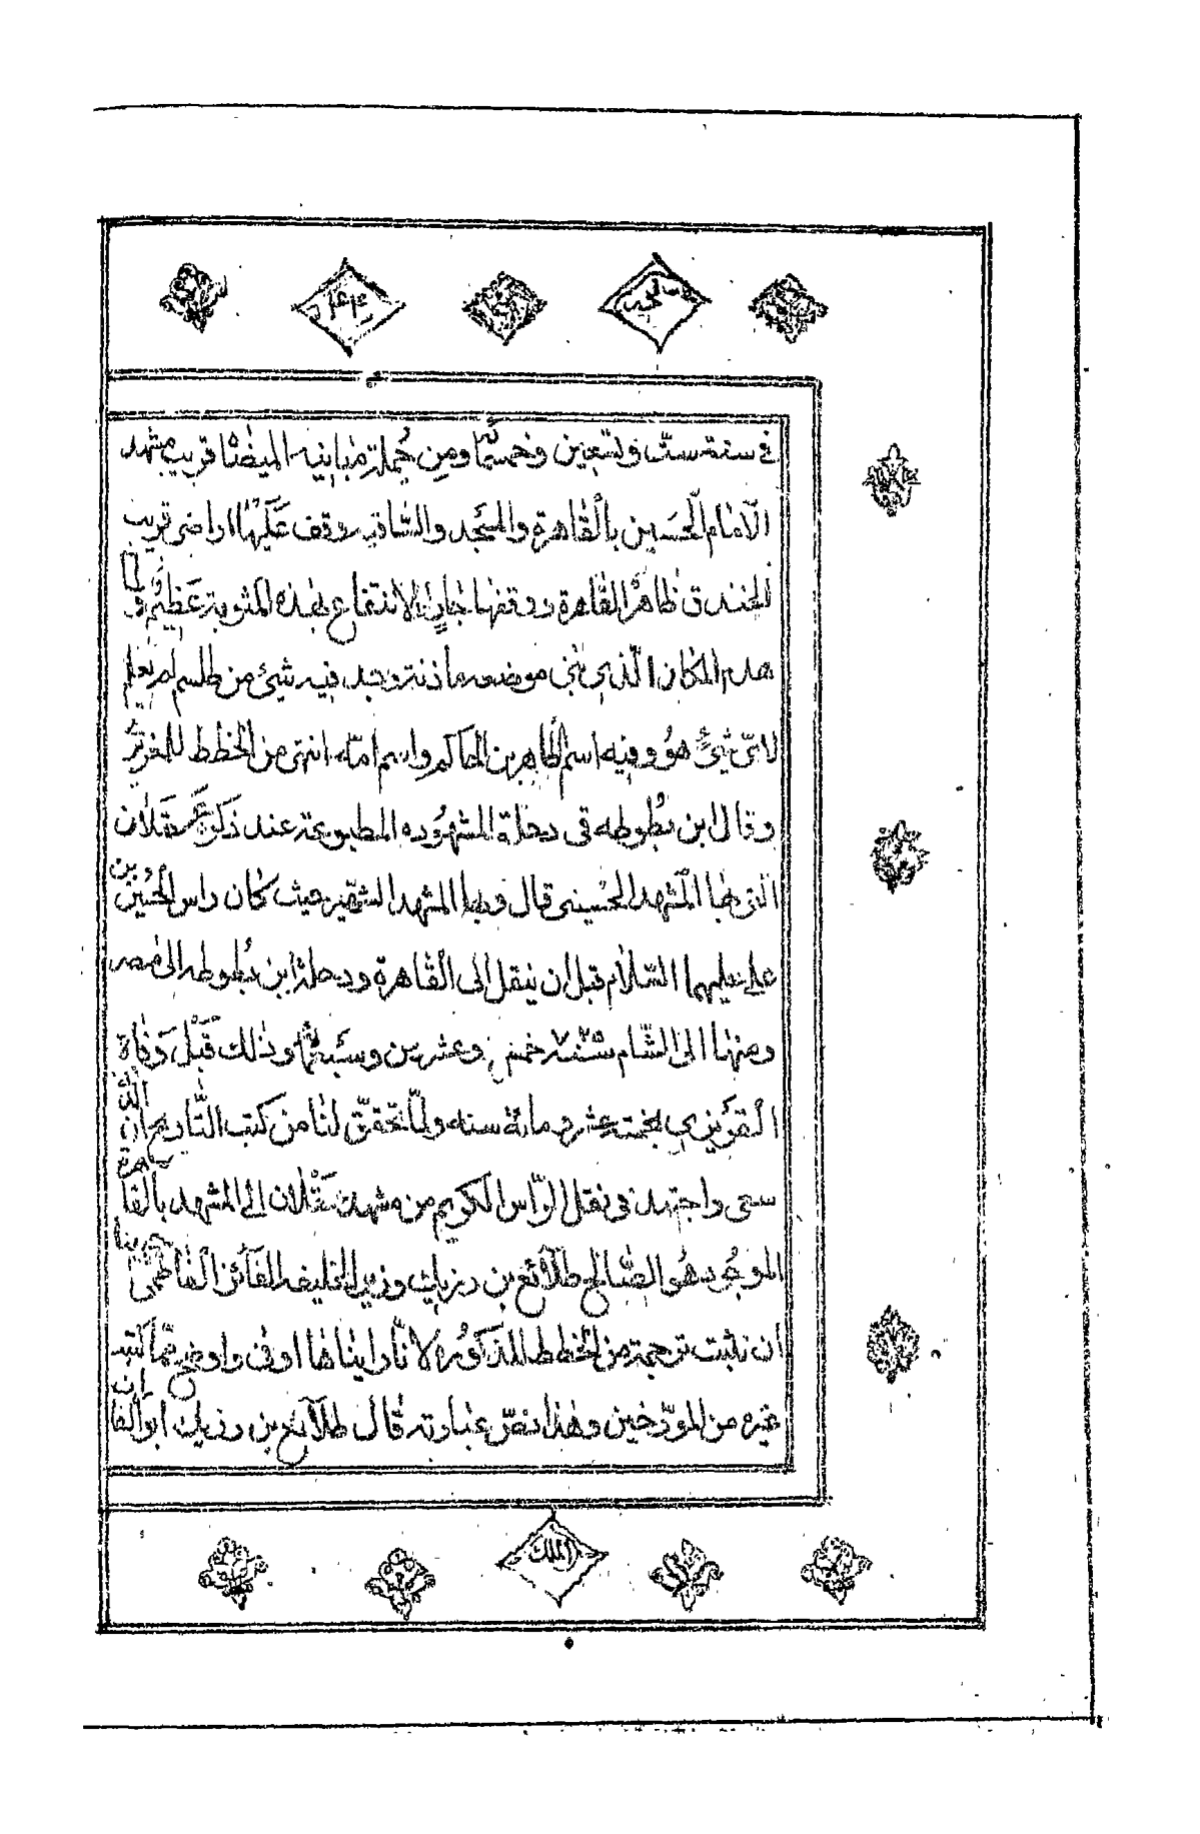 في سنة ستّ وتسعين وخمسمائة ومن جملة مبانيه الميضاة قريب مشهد
الامام الحسين بالقاهرة والمسجد والساقيه ووقف عليها اراضى قريب
الخندق ظاهر القاهرة ووقفها جار والانتفاع بهذه المثوبة عظيم ولما
هدم المكان الّذى بنى موضعه ماذنة وجد فيه شئ من طلسم لم يعلم
لاىّ شئ هو وفيه اسم الظاهر بن الحاكم واسم امّه انتهى من الخطط للمقريزى
وقال ابن بطوطه فى رحلة المشهوره المطبوعة عند ذكر عسقلان
التى بها المشهد الحسينى قال وبها المشهد الشهير حيث كان راس الحسين بن
على عليهما السّلام قبل ان ينقل الى القاهرة ورحلة ابن بطوطه الى مصر
ومنها الى الشّام سنة خمس وعشرين وسبعمائة وذلك قبل وفاة
المقريزى بخمسة عشر و مائة سنه ولمّا تحقّق لنا من كتب التّاريخ ان الّذى
سعى واجتهد فى نقل الرّاس الكريم من مشهد عسقلان الى المشهد بالقاهرة
الموجود هو الصّالح طلآئع بن رزيك وزير الخليفه الفآئز الفاطمىّ
ان نثبت ترجمة من الخطط المذكوره لانّا رايناها اوفى واوضح ممّا كتبه
غيره من المورّخين وهذا نصّ عبارته قال طلآئع بن رزيك ابوالغارات
الملك